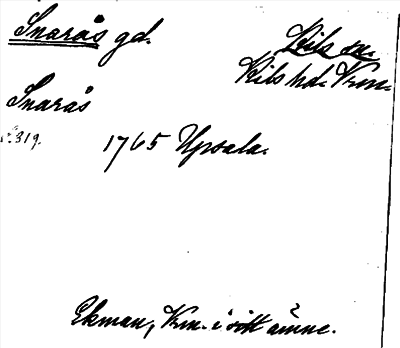 Snarås gd.
Kils sn.
Kils hd. Vrm.
Snarås
s. 319.
1765 Upsala.
Ekman, Vrm. i sitt ämne.